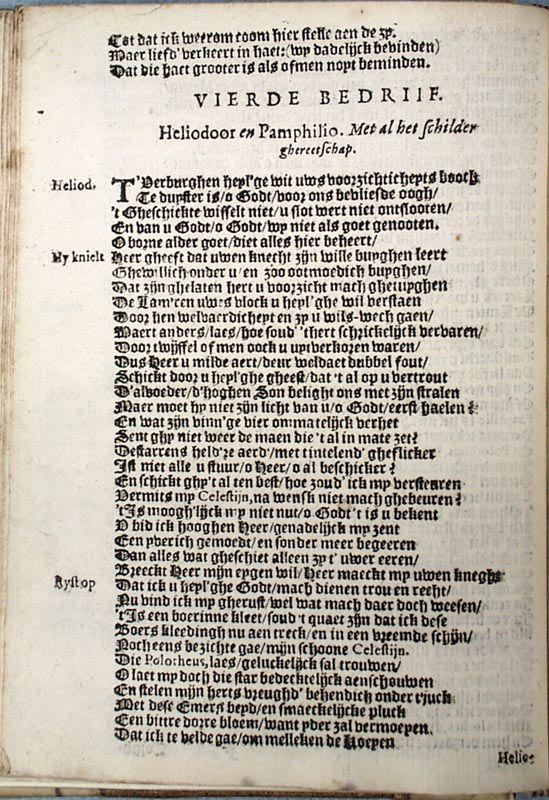 Tot dat ick weerom coom hier stelle aen de zy.
Maer liefd' verkeert in haet: (wy dadelijck bevinden)
Dat die haet grooter is als ofmen noyt beminden.
VIERDE BEDRIIF.
Heliodoor en Pamphilio. Met al het schilder
ghereetschap.
Heliod. T'Verburghen heyl'ge wit uws voorzichticheyts boock
Te duyster is/o Godt/voor ons bevliesde oogh/
't Gheschickte wisselt niet/u slot wert niet ontslooten/
En van u Godt/o Godt/wy niet als goet genooten.
O borne alder goet/diet alles hier beheert/
Hy knielt Heer gheest dat uwen knecht zijn wille buyghen leert
Ghewillich onder u/en zoo ootmoedich buyghen/
Dat zijn ghelaten hert u voorzicht mach ghetuyghen
De Lam'ren uwes vlock u heyl'ghe wil verstaen
Voor hen welvaerdicheyt en zy u wils-wech gaen/
Maert anders/laes/hoe soud' 'thert schrickelijck vervaren/
Door twyffel ofmen oock u uytverkoren waren/
Dus Heer u milde aert/deur weldaet dubbel fout/
Schickt door u heyl'ghe gheest/dat 't al op u vertrout
D'alvoeder/d'hoghen Son belight ons met zijn stralen
Maer moet hy niet zijn licht van u/o Godt/eerst haelen?
En wat zijn vinn'ge vier onmatelijck verhet
Sent ghy niet weer de maen die 't al in mate zet?
Destarrens held're aerd'/met tintelend' gheflicker
Ist niet alle u stuur/o Heer/o al beschicker?
En schickt ghy 't al ten best/hoe zoud' ick my versteuren
Vermits my Celestijn, na wensk niet mach ghebeuren?
't Is moogh'lijck my niet nut/o Godt 't is u bekent
V bid ick hooghen Heer/genadelijck my zent
Een yverich gemoedt/en sonder meer begeeren
Dan alles wat gheschiet alleen zy t' uwer eeren/
Breeckt Heer mijn eygen wil/Heer maeckt my uwen kneght
Rijst op Dat ick u heyl'ghe Godt/mach dienen trou en recht/
Nu vind ick my gherust/wel wat mach daer doch weesen/
't Is een boerinne kleet/soud't quaet zijn dat ick dese
Boers kleedingh nu aen treck/en in een vreemde schijn/
Noch eens bezichte gae/mijn schoone Celestijn.
Die Polotheus, laes/geluckelijck sal trouwen/
O laet my doch die star bedecktelijck aenschouwen
En stelen mijn herts vreughd' behendich onder t'juck
Met dese Emers beyd/en smaeckelijcke pluck
Een bittre dorre bloem/want yder zal vermoeyen.
Dat ick te velde gae/om melleken de Koeyen
Helio-